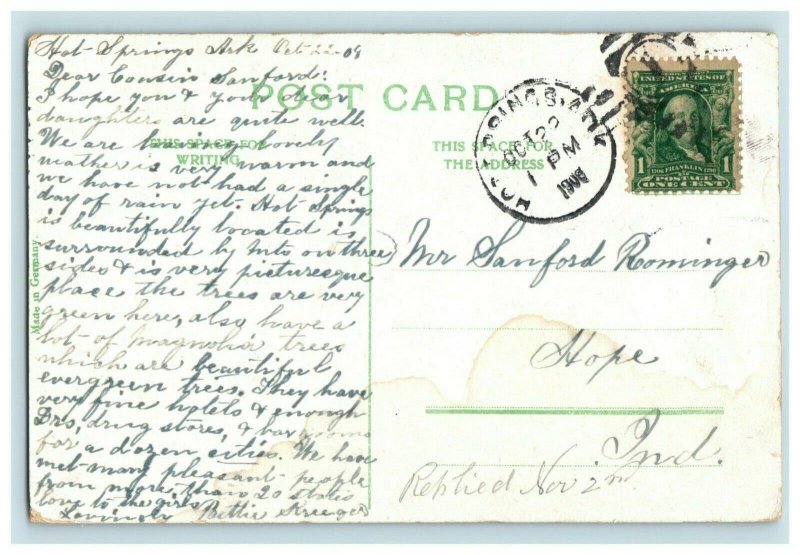 Hot Springs Ark Oct-22-08
Dear Cousin Sanford:
I hope you & your dear
daughters are quite well.
We are having lovely
wather is very warm and
we have not had a single
day of rain yet. Hot Springs
is beautifully located is
surrounded by Mts on three
sides & is very picturesque
place the trees are very
green here, also have a
lot of magnolia trees
which are beautiful
evergreen trees. They have
very fine hotels & enough
Drs, drug stores, & bar rooms
for a dozen cities. We have
met many pleasant people
from more than 20 states
love to the girls
Lovingly Bettie Krueger
POST CARD
THIS SPACE FOR
WRITING
THIS SPACE FOR
THE ADDRESS
Made in Germany.
HOT SPRINGS, ARK
OCT 22
1 PM
1908
UNITED STATES OF
AMERICA
1 FRANKLIN 1
POSTAGE
ONE CENT
Mr Sanford Rominger
Hope
Ind.
Replied Nov 2nd